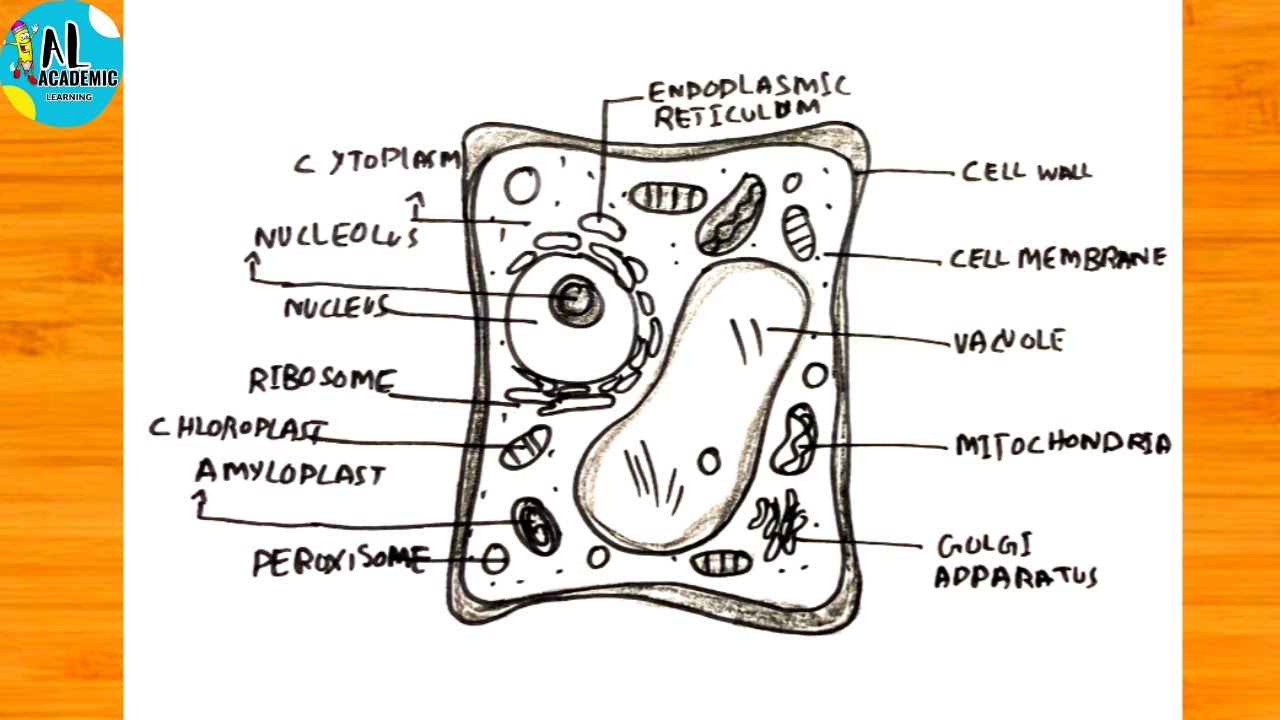 AL
ACADEMIC
LEARNING
ENDOPLASMIC
RETICULUM
CYTOPLASM
CELL WALL
NUCLEOLUS
CELL MEMBRANE
NUCLEUS
VACUOLE
RIBOSOME
CHLOROPLAST
MITOCHONDRIA
AMYLOPLAST
PEROXISOME
GOLGI
APPARATUS